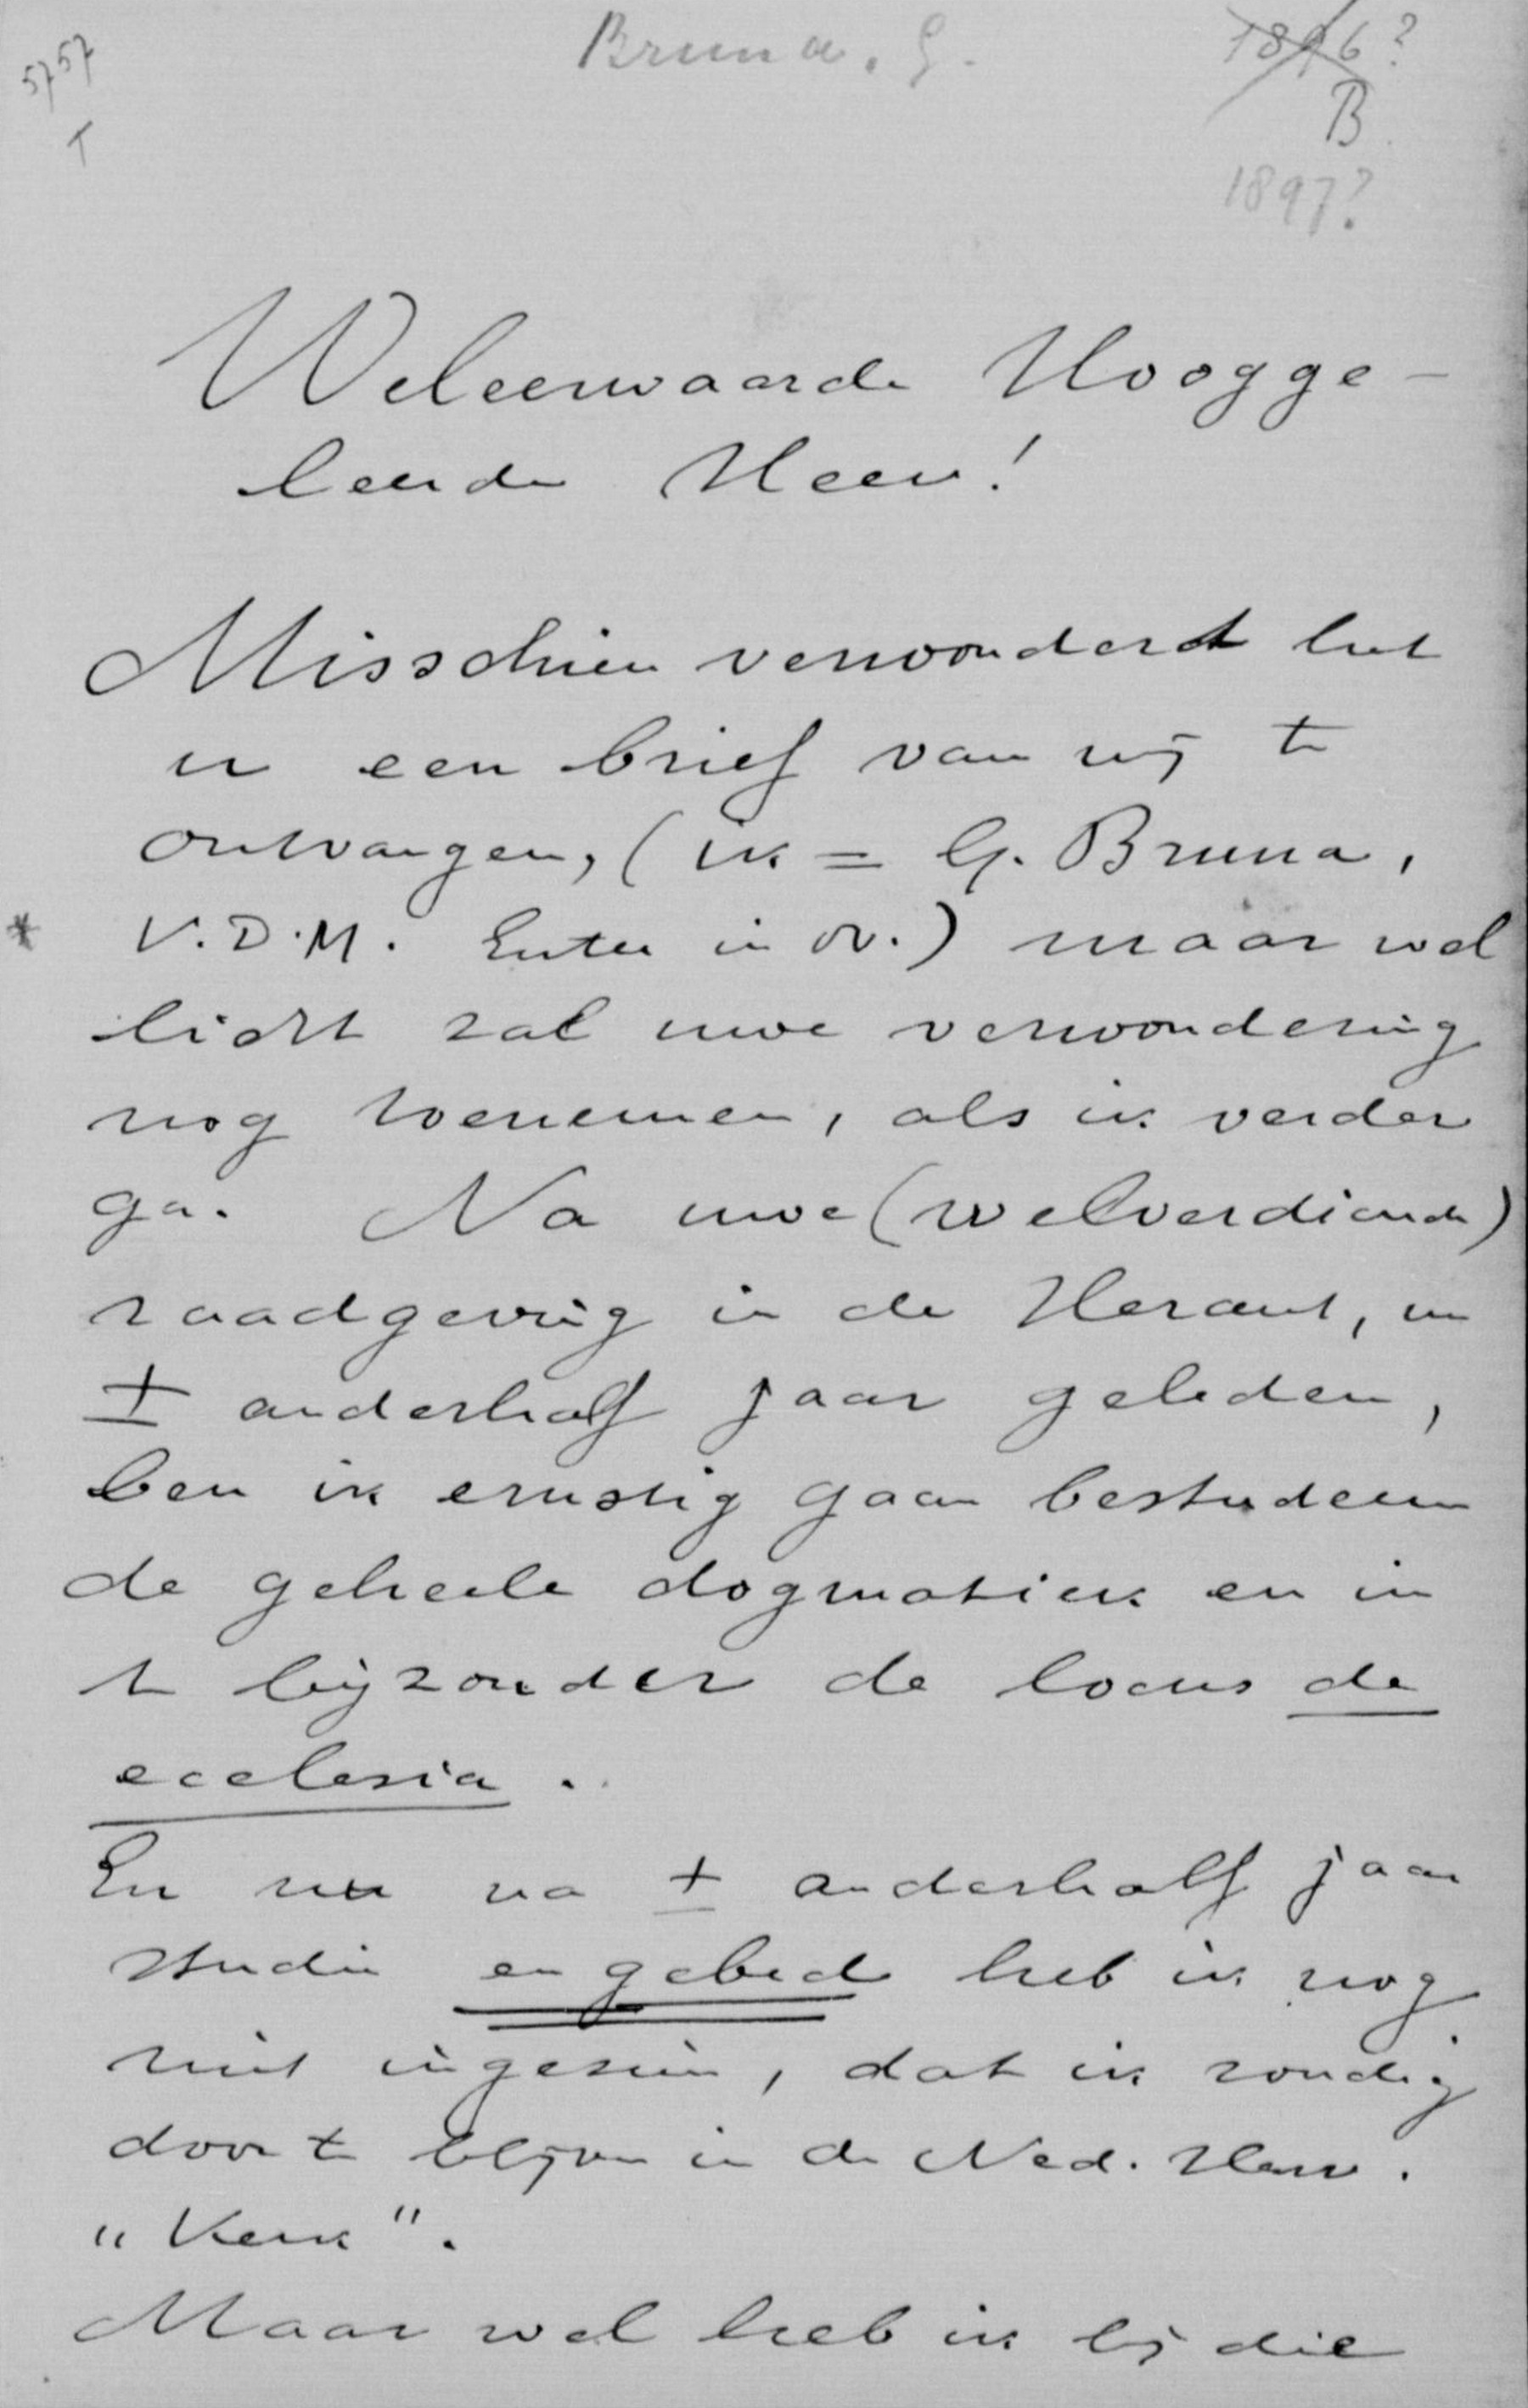 5757
T
Bruna. G.
1896?
B
1897?
Weleerwaarde Hoogge-
leerde Heer!
Misschien verwondert het
u een brief van mij te
ontvangen, (ik = G. Bruna,
* V.D.M. Enter in Ov.) maar wel
licht zal uwe verwondering
nog toenemen, als ik verder
ga. Na uwe (welverdiende)
raadgeving in de Heraut, nu
± anderhalf jaar geleden,
ben ik ernstig gaan bestudeeren
de geheele dogmatiek en in
't bijzonder de locus de
ecclesia.
En nu na ± anderhalf jaar
studie en gebed heb ik nog
niet ingezien, dat ik zondig
door te blijven in de Ned. Herv.
"Kerk".
Maar wel heb ik bij die